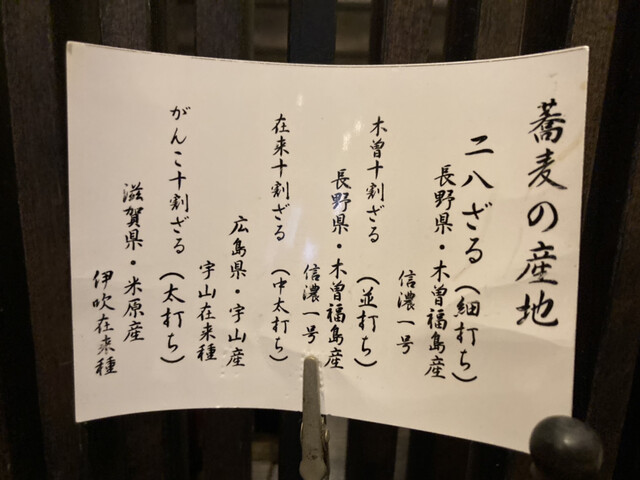 蕎麦の産地
二八ざる（細打ち）
長野県・木曽福島産
信濃一号
木曽十割ざる（並打ち）
長野県・木曽福島産
信濃一号
在来十割ざる（中太打ち）
広島県・宇山産
宇山在来種
がんこ十割ざる（太打ち）
滋賀県・米原産
伊吹在来種